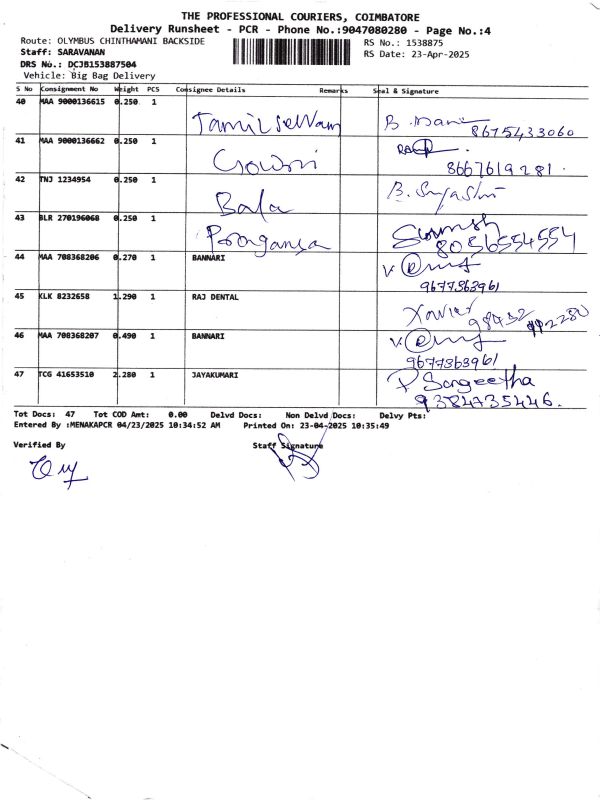 THE PROFESSIONAL COURIERS, COIMBATORE
Delivery Runsheet - PCR - Phone No.:9047080280 - Page No.:4
Route: OLYMBUS CHINTHAMANI BACKSIDE RS No.: 1538875
Staff: SARAVANAN RS Date: 23-Apr-2025
DRS No.: DCJB153887504
Vehicle: Big Bag Delivery
S No Consignment No Weight PCS Consignee Details Remarks Seal & Signature
40 MAA 9000136615 0.250 1 Tamilselvam B. Mani 8675433060
41 MAA 9000136662 0.250 1 Gowri 8667619281.
42 TNJ 1234954 0.250 1 Bala
43 BLR 270196068 0.250 1 8056554554
44 MAA 708368206 0.270 1 BANNARI 9677363961
45 KLK 8232658 1.290 1 RAJ DENTAL Xavier 98432
46 MAA 708368207 0.490 1 BANNARI 9677363961
47 TCG 41653510 2.280 1 JAYAKUMARI P Sangeetha 9384735446.
Tot Docs: 47 Tot COD Amt: 0.00 Delvd Docs: Non Delvd Docs: Delvy Pts:
Entered By :MENAKAPCR 04/23/2025 10:34:52 AM Printed On: 23-04-2025 10:35:49
Verified By Staff Signature